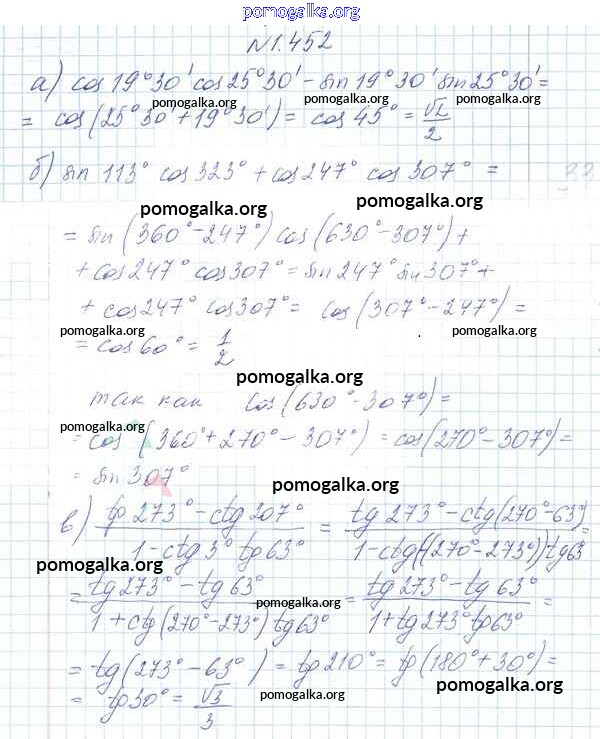 pomogalka.org
№1.452
а) cos 19°30' cos 25°30' - sin 19°30' sin 25°30' =
pomogalka.org pomogalka.org
= cos(25°30' + 19°30') = cos 45° = √2/2
pomogalka.org
б) sin 113° cos 323° + cos 247° cos 307° =
pomogalka.org pomogalka.org
= sin(360° - 247°) cos(630° - 307°) +
+ cos 247° cos 307° = sin 247° sin 307° +
+ cos 247° cos 307° = cos(307° - 247°) =
pomogalka.org pomogalka.org
= cos 60° = 1/2
pomogalka.org
так как cos(630° - 307°) =
pomogalka.org
= cos(360° + 270° - 307°) = cos(270° - 307°) =
= sin 307°
pomogalka.org
в) (tg 273° - ctg 207°)/(1 - ctg 3° tg 63°) = (tg 273° - ctg(270° - 63°))/(1 - ctg((270° - 273°)) tg 63°) =
pomogalka.org pomogalka.org
= (tg 273° - tg 63°)/(1 + ctg(270° - 273°) tg 63°) = (tg 273° - tg 63°)/(1 + tg 273° tg 63°) =
pomogalka.org
= tg(273° - 63°) = tg 210° = tg(180° + 30°) =
pomogalka.org
= tg 30° = √3/3
pomogalka.org